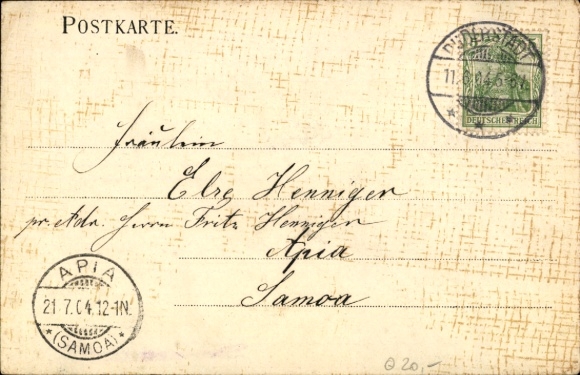 POSTKARTE.
DUDERSTADT
11.6.04.5-6N.
DEUTSCHES REICH
Fräulein
Else Henniger
pr. Adr. Herrn Fritz Henniger
Apia
Samoa
APIA
21.7.04.12-1N.
* (SAMOA) *
Q 20,-